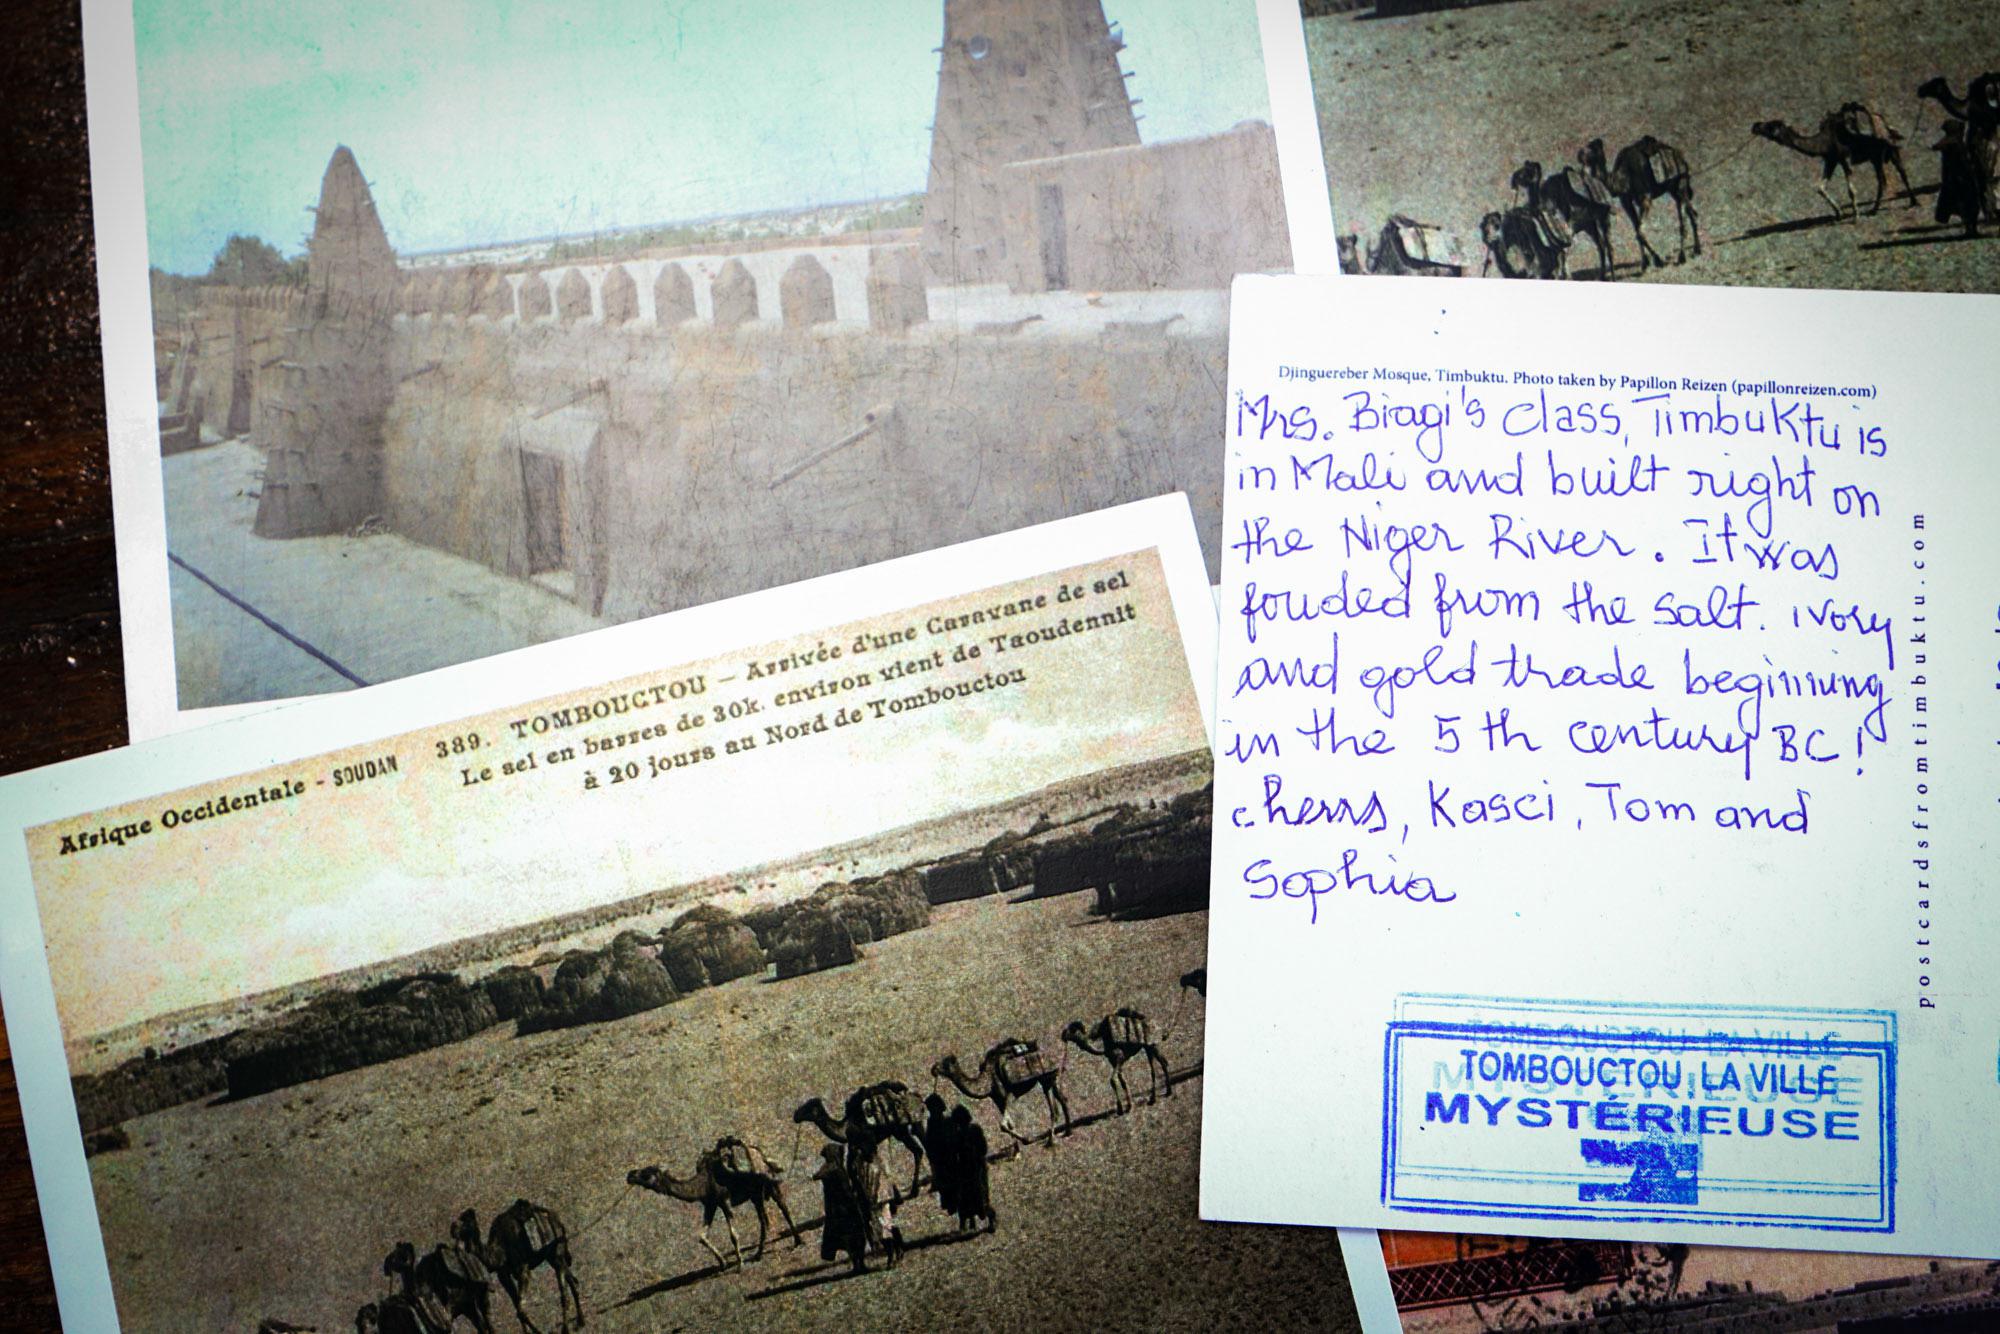 Afrique Occidentale - SOUDAN 389. TOMBOUCTOU - Arrivée d'une Caravane de sel
Le sel en barres de 30k. environ vient de Taoudennit
à 20 jours au Nord de Tombouctou
Djinguereber Mosque, Timbuktu. Photo taken by Papillon Reizen (papillonreizen.com)
Mrs. Biagi's class, Timbuktu is
in Mali and built right on
the Niger River. It was
fouded from the salt. ivory
and gold trade beginning
in the 5 th century BC!
cherrs, Kasci, Tom and
Sophia
postcardsfromtimbuktu.com
TOMBOUCTOU LA VILLE
MYSTÉRIEUSE